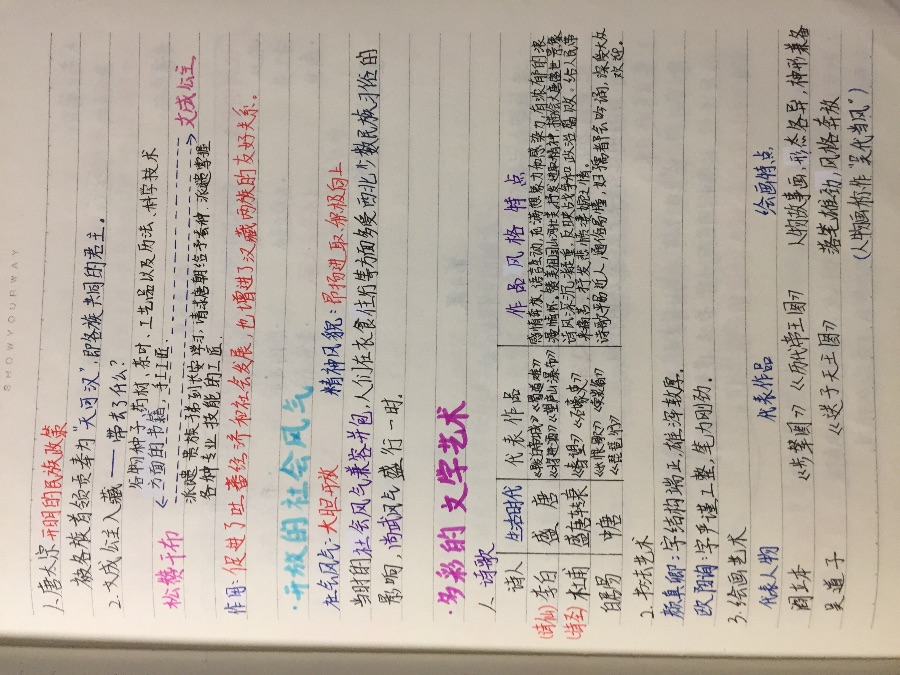 SHOWYOURWAY
1、唐太宗开明的民族政策
被各族首领尊奉为"天可汗",即各族共同的君主。
2. 文成公主入藏 —— 带去了什么?
谷物种子、药材、茶叶、工艺品以及历法、科学技术
方面的书籍,手工工匠
松赞干布 文成公主
派遣贵族子弟到长安学习,请求唐朝给予蚕种,派遣掌握
各种专业技能的工匠
作用:促进了吐蕃经济和社会发展,也增进了汉藏两族的友好关系。
·开放的社会风气
社会风气:大胆开放 精神风貌:昂扬进取、积极向上
当时的社会风气兼容并包,人们在衣食住行等方面多受西北少数民族习俗的
影响,尚武风气盛行一时。
·多彩的文学艺术
1、诗歌
诗人 生活时代 代表作品 作品风格特点
(诗仙) 李白 盛唐 《早发白帝城》《蜀道难》《将进酒》《望庐山瀑布》 感情奔放,语言生动,充满想象力和感染力,有浓郁的浪漫情怀
(诗圣) 杜甫 盛唐转衰 《春望》《石壕吏》 诗风深沉、凝重,反映战争和政治腐败,给人民带来痛苦
白居易 中唐 《长恨歌》《卖炭翁》《琵琶行》 诗歌平易近人,通俗易懂,妇孺都会吟诵,深受大众欢迎。
2、书法艺术
颜真卿:字结构端正,雄浑敦厚。
欧阳询:字严谨工整,笔力刚劲。
3.绘画艺术
代表人物 代表作品 绘画特点
阎立本 《步辇图》《历代帝王图》 人物故事画,形态各异,神形兼备
吴道子 《送子天王图》 落笔雄劲,风格奔放
(人物画称作"吴代当风")